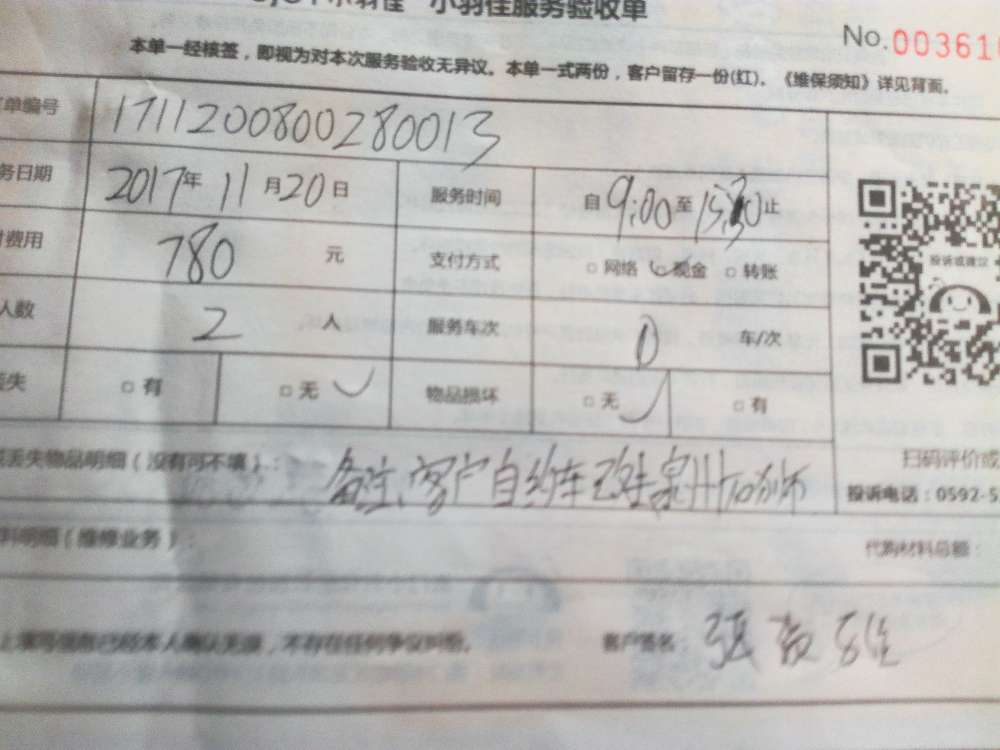 小羽佳服务验收单
No.00361
本单一经核签，即视为对本次服务验收无异议。本单一式两份，客户留存一份(红)。《维保须知》详见背面。
单编号 1711200800280013
务日期 2017年 11月20日 服务时间 自9:00至15:30止
费用 780 元 支付方式 □网络 现金 □转账
投诉或建议
人数 2 人 服务车次 0 车/次
失 □有 □无 物品损坏 □无 □有
丢失物品明细（没有可不填）： 备注、客户自约车 泉州石狮
扫码评价或
投诉电话：0592-5
料明细（维修业务）：
代购材料总额：
上填写信息已经本人确认无误，不存在任何争议纠纷。 客户签名： 张